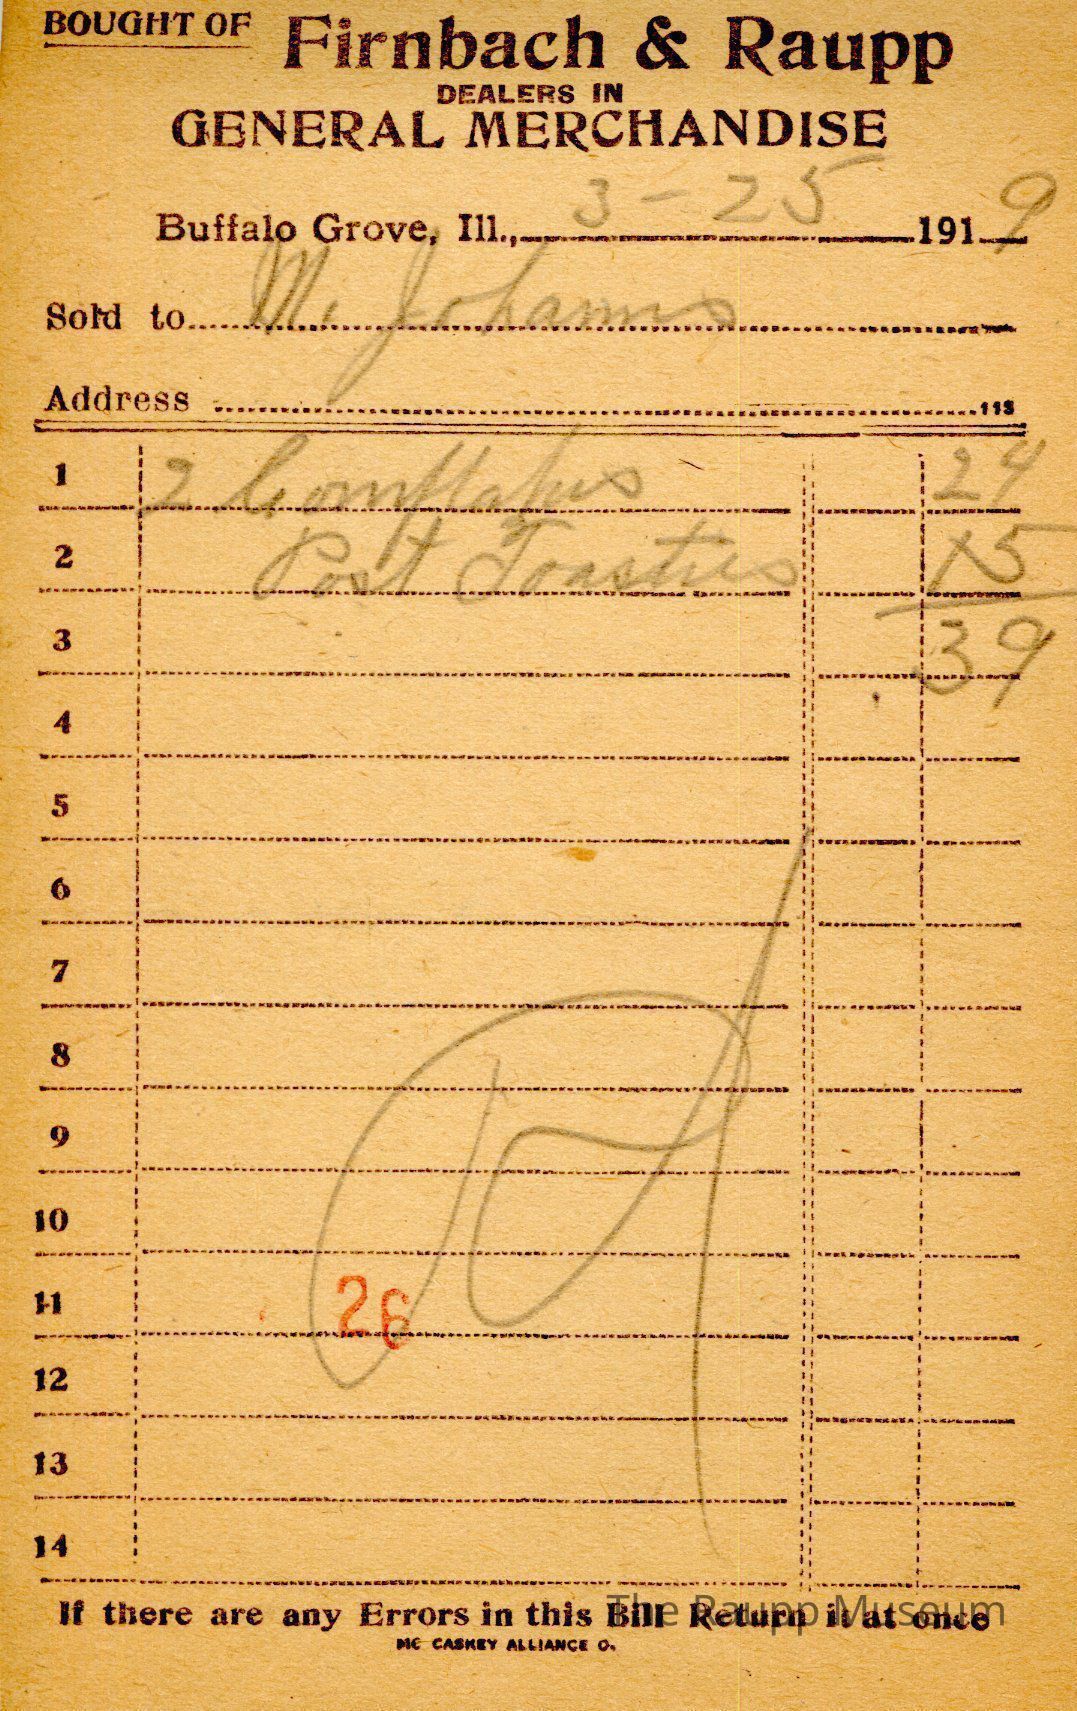 BOUGHT OF Firnbach & Raupp
DEALERS IN
GENERAL MERCHANDISE
Buffalo Grove, Ill., 3-25 1919
Sold to M. Johanns
Address 118
1 2 Cornflakes 24
2 Post Toasties 15
3 .39
4
5
6
7
8
9
10
11 26
12
13
14
If there are any Errors in this Bill Return it at once
The Raupp Museum
MC CASKEY ALLIANCE O.